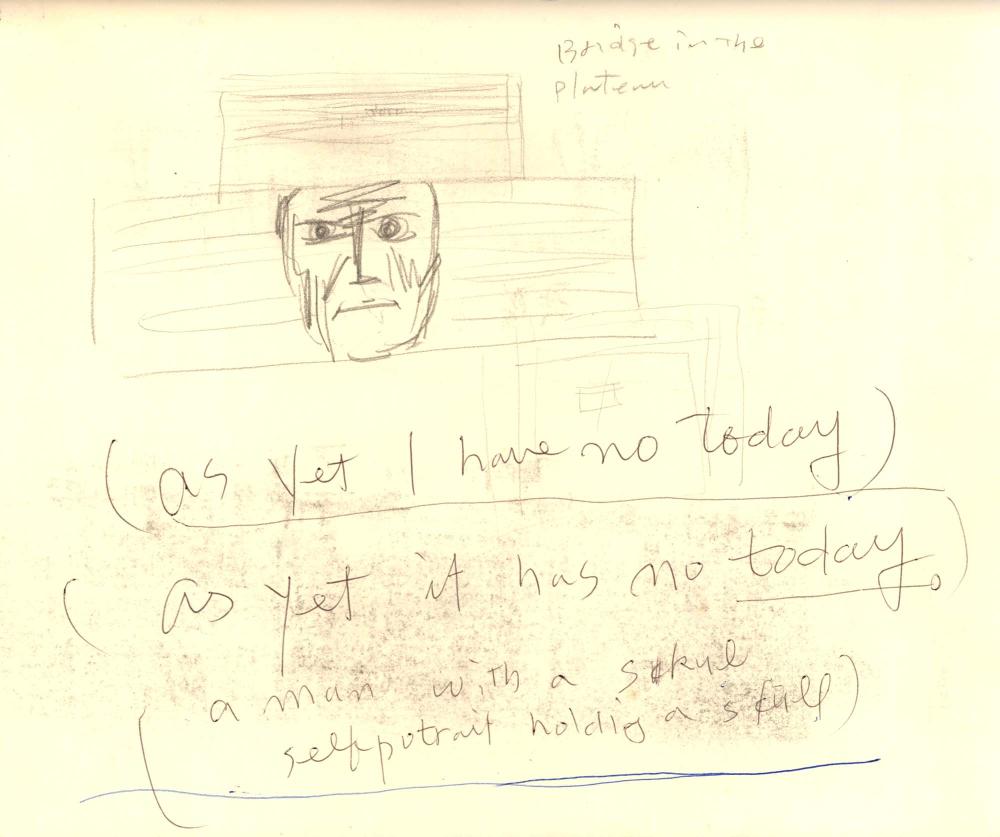 Bridge in the
plateau
(as yet I have no today)
(as yet it has no today.)
a man with a skul
(selfpotrait holdig a skull)